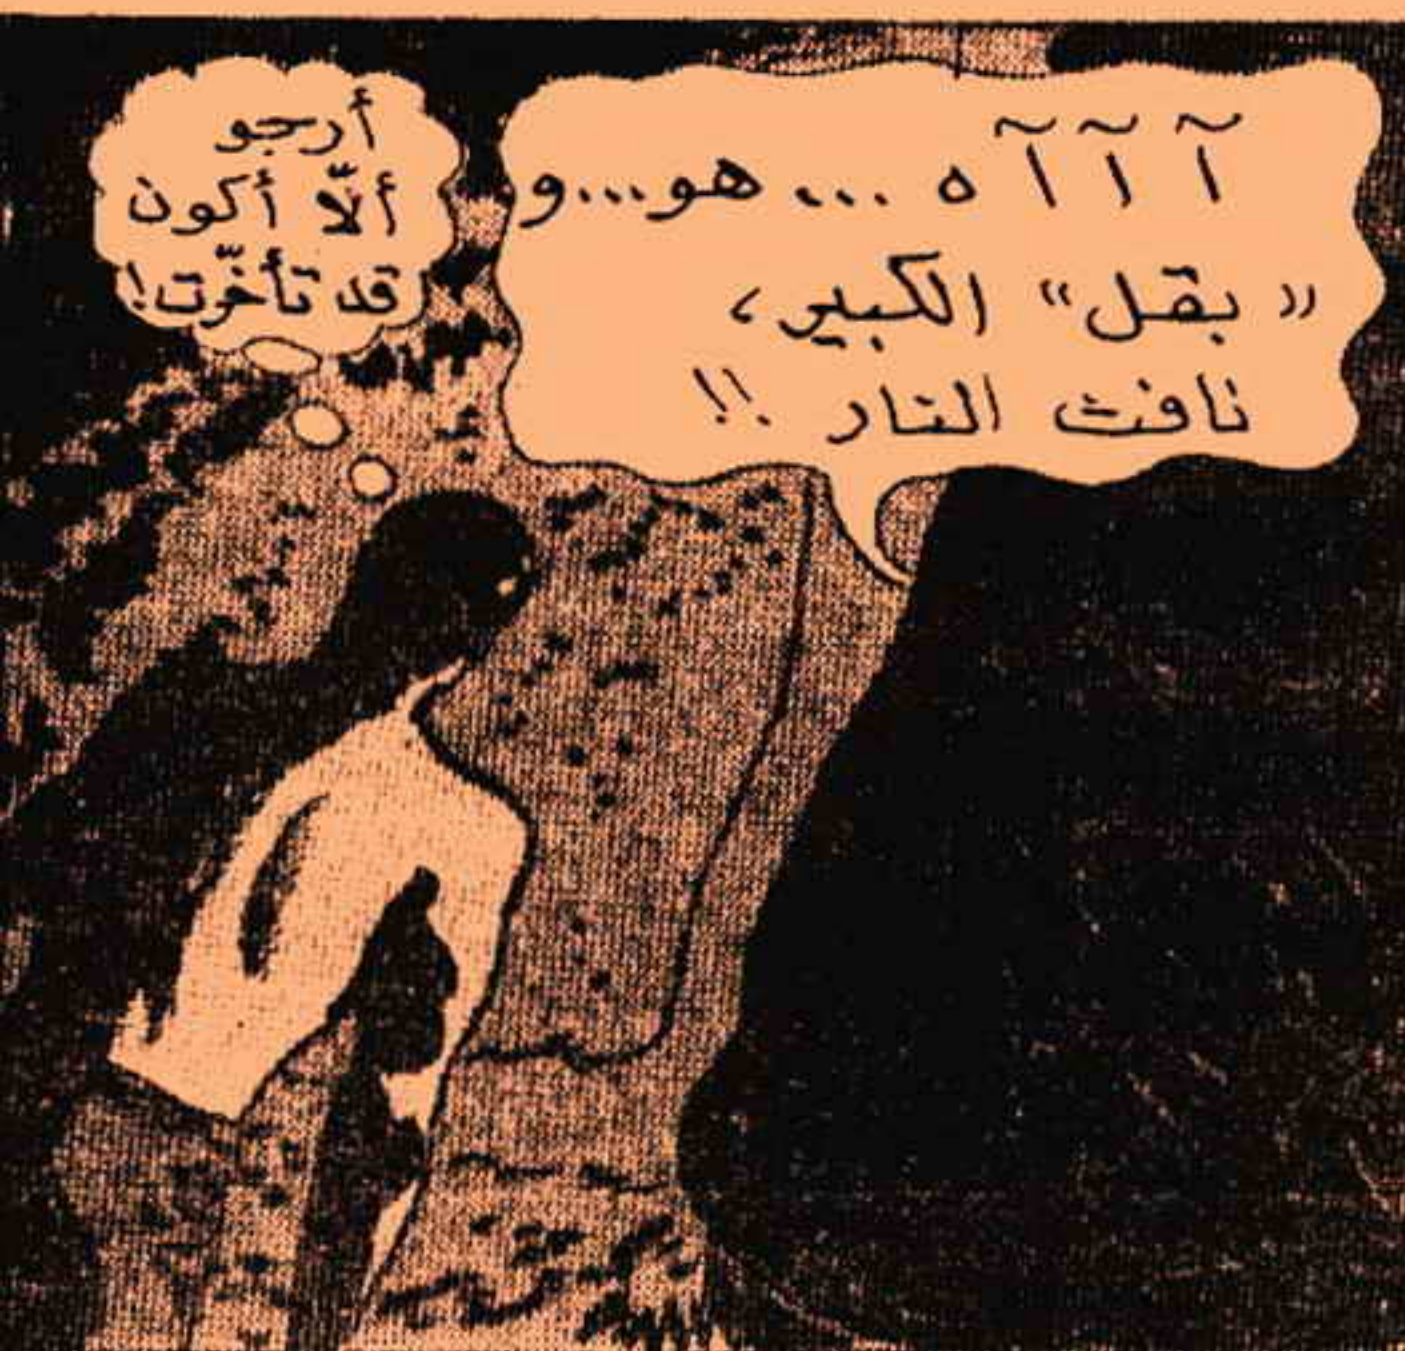 آ آ آ ه ... هو...و
« بقل » الكبير،
نافث النار !!
أرجو
ألّا أكون
قد تأخّرت!